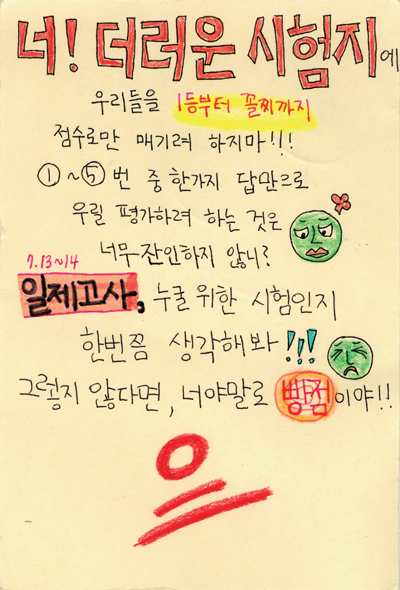 너! 더러운 시험지에
우리들을 1등부터 꼴찌까지
점수로만 매기려 하지마!!!
①~⑤ 번 중 한가지 답만으로
우릴 평가하려 하는 것은
너무 잔인하지 않니?
7.13~14
일제고사, 누굴 위한 시험인지
한번쯤 생각해봐 !!!
그렇지 않다면, 너야말로 빵점이야!!